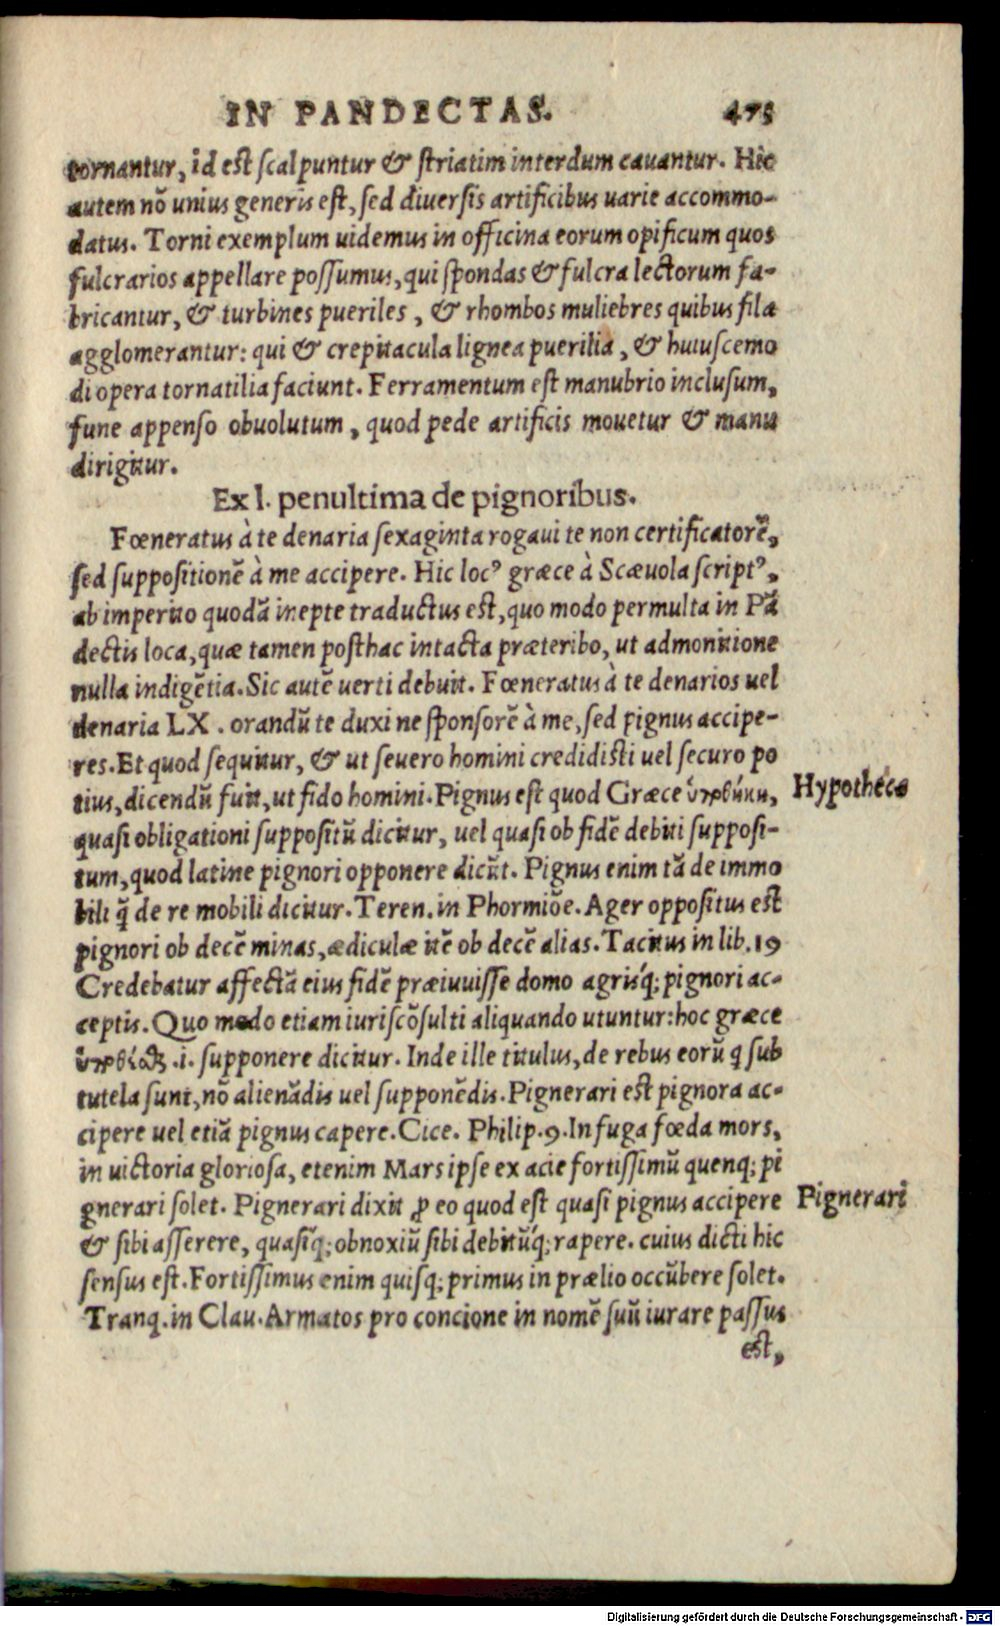 IN PANDECTAS. 475
tornantur, id est scalpuntur & striatim interdum cauantur. Hic
autem nō unius generis est, sed diuersis artificibus uarie accommo-
datus. Torni exemplum uidemus in officina eorum opificum quos
fulcrarios appellare possumus, qui spondas & fulcra lectorum fa-
bricantur, & turbines pueriles, & rhombos muliebres quibus fila
agglomerantur: qui & crepitacula lignea puerilia, & huiuscemo
di opera tornatilia faciunt. Ferramentum est manubrio inclusum,
fune appenso obuolutum, quod pede artificis mouetur & manu
dirigitur.
Ex l. penultima de pignoribus.
Fœneratus à te denaria sexaginta rogaui te non certificatorē,
sed suppositionē à me accipere. Hic locꝰ græce à Scæuola scriptꝰ,
ab imperito quodā inepte traductus est, quo modo permulta in Pā
dectis loca, quæ tamen posthac intacta præteribo, ut admonitione
nulla indigētia. Sic autē uerti debuit. Fœneratus à te denarios uel
denaria LX. orandū te duxi ne sponsorē à me, sed pignus accipe-
res. Et quod sequitur, & ut seuero homini credidisti uel securo po
tius, dicendū fuit, ut fido homini. Pignus est quod Græce ὑποθήκη,
Hypothéca
quasi obligationi suppositū dicitur, uel quasi ob fidē debiti supposi-
tum, quod latine pignori opponere dicūt. Pignus enim tā de immo
bili q̄̄ de re mobili dicitur. Teren. in Phormiōe. Ager oppositus est
pignori ob decē minas, ædiculæ itē ob decē alias. Tacitus in lib. 19
Credebatur affectā eius fidē præiuuisse domo agrisq́; pignori ac-
ceptis. Quo modo etiam iuriscōsulti aliquando utuntur: hoc græce
ὑποθέιϑς .i. supponere dicitur. Inde ille titulus, de rebus eorū q̄ sub
tutela sunt, nō alienādis uel supponēdis. Pignerari est pignora ac-
cipere uel etiā pignus capere. Cice. Philip. 9. In fuga fœda mors,
in uictoria gloriosa, etenim Mars ipse ex acie fortissimū quenq; pi
gnerari solet. Pignerari dixit ꝓ eo quod est quasi pignus accipere
Pignerari
& sibi asserere, quasiq́; obnoxiū sibi debitūq́; rapere. cuius dicti hic
sensus est. Fortissimus enim quisq; primus in prælio occūbere solet.
Tranq. in Clau. Armatos pro concione in nomē suū iurare passus
est,
Digitalisierung gefördert durch die Deutsche Forschungsgemeinschaft - DFG